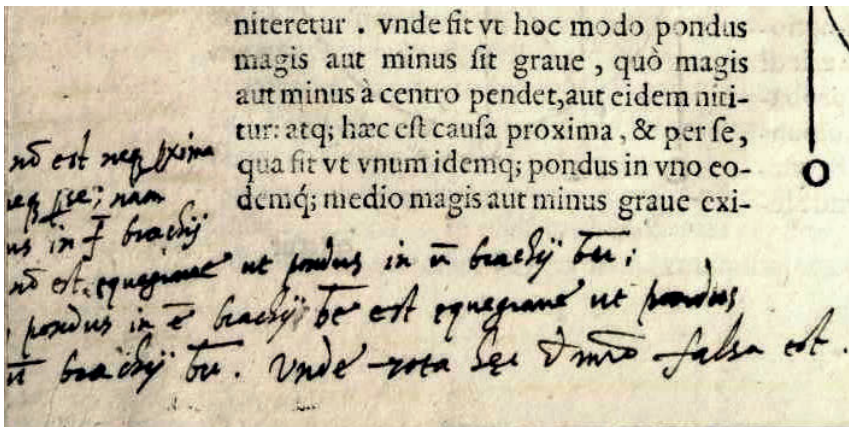 niteretur . vnde fit vt hoc modo pondus
magis aut minus sit graue , quò magis
aut minus à centro pendet, aut eidem niti-
tur: atq; hæc est causa proxima , & per se,
qua fit vt vnum idemq; pondus in vno eo-
demq́; medio magis aut minus graue exi-
est neq
nam
in brachij
est equegraue ut pondus in ū brachij bu;
pondus in ē brachij be est equegraue ut pondus
ū brachij bu. Vnde falsa est.